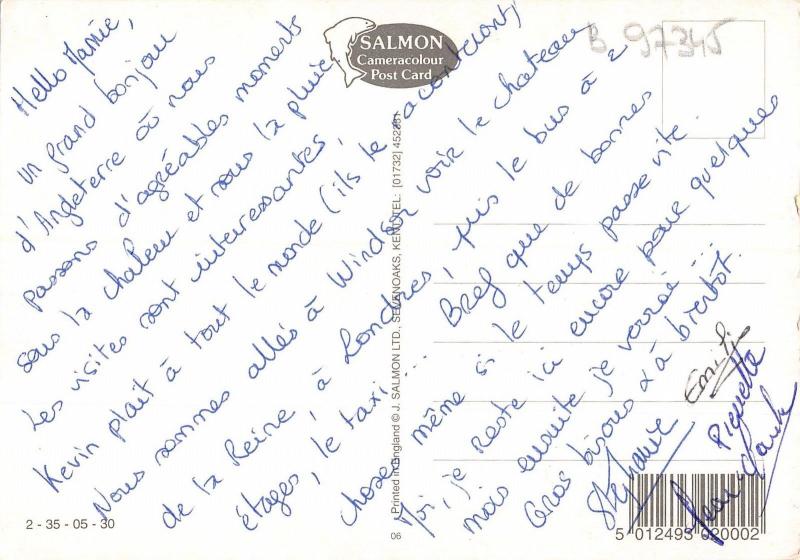 B 97345
SALMON
Cameracolour
Post Card
Hello Mamie,
un grand bonjour
d'Angleterre où nous
passons d'agréables moments
sous la chaleur et sous la pluie.
Les visites sont interessantes,
Kevin plait à tout le monde (ils le racontent)
Nous sommes allés à Windsor voir le chateau
de la Reine, à Londres, puis le bus à 2
étages, le taxi... Bref que de bonnes
choses même si le temps passe vite.
Moi, je reste ici encore pour quelques
mois ensuite je verrai...
Gros bisous & à bientôt.
Stéphanie
Piquette
Jean
Printed in England © J. SALMON LTD., SEVENOAKS, KENT. TEL: [01732] 452381
2 - 35 - 05 - 30
06
5 012493 020002